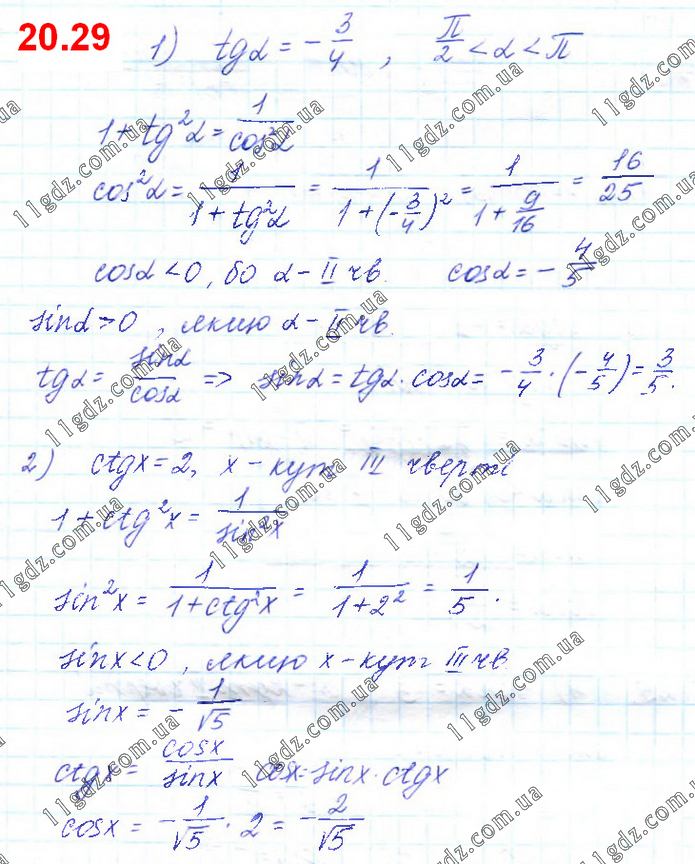 20.29
1) tgα = -3/4 , π/2 < α < π
1 + tg²α = 1/cos²α
cos²α = 1/(1 + tg²α) = 1/(1 + (-3/4)²) = 1/(1 + 9/16) = 16/25
cosα < 0, бо α - II чв. cosα = -4/5
sinα > 0 , якщо α - II чв.
tgα = sinα/cosα => sinα = tgα · cosα = -3/4 · (-4/5) = 3/5.
2) ctgx = 2, x - кут III чверті
1 + ctg²x = 1/sin²x
sin²x = 1/(1 + ctg²x) = 1/(1 + 2²) = 1/5.
sinx < 0 , якщо x - кут III чв.
sinx = -1/√5
ctgx = cosx/sinx cosx = sinx · ctgx
cosx = -1/√5 · 2 = -2/√5
11gdz.com.ua